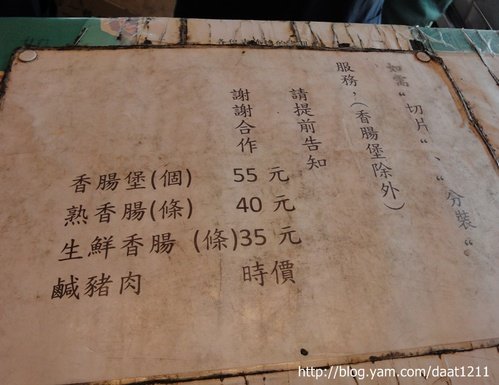 如需“切片“、“分裝“。
服務，(香腸堡除外)
請提前告知
謝謝合作
香腸堡(個) 55 元
熟香腸(條) 40 元
生鮮香腸 (條)35 元
鹹豬肉 時價
http://blog.yam.com/daat1211